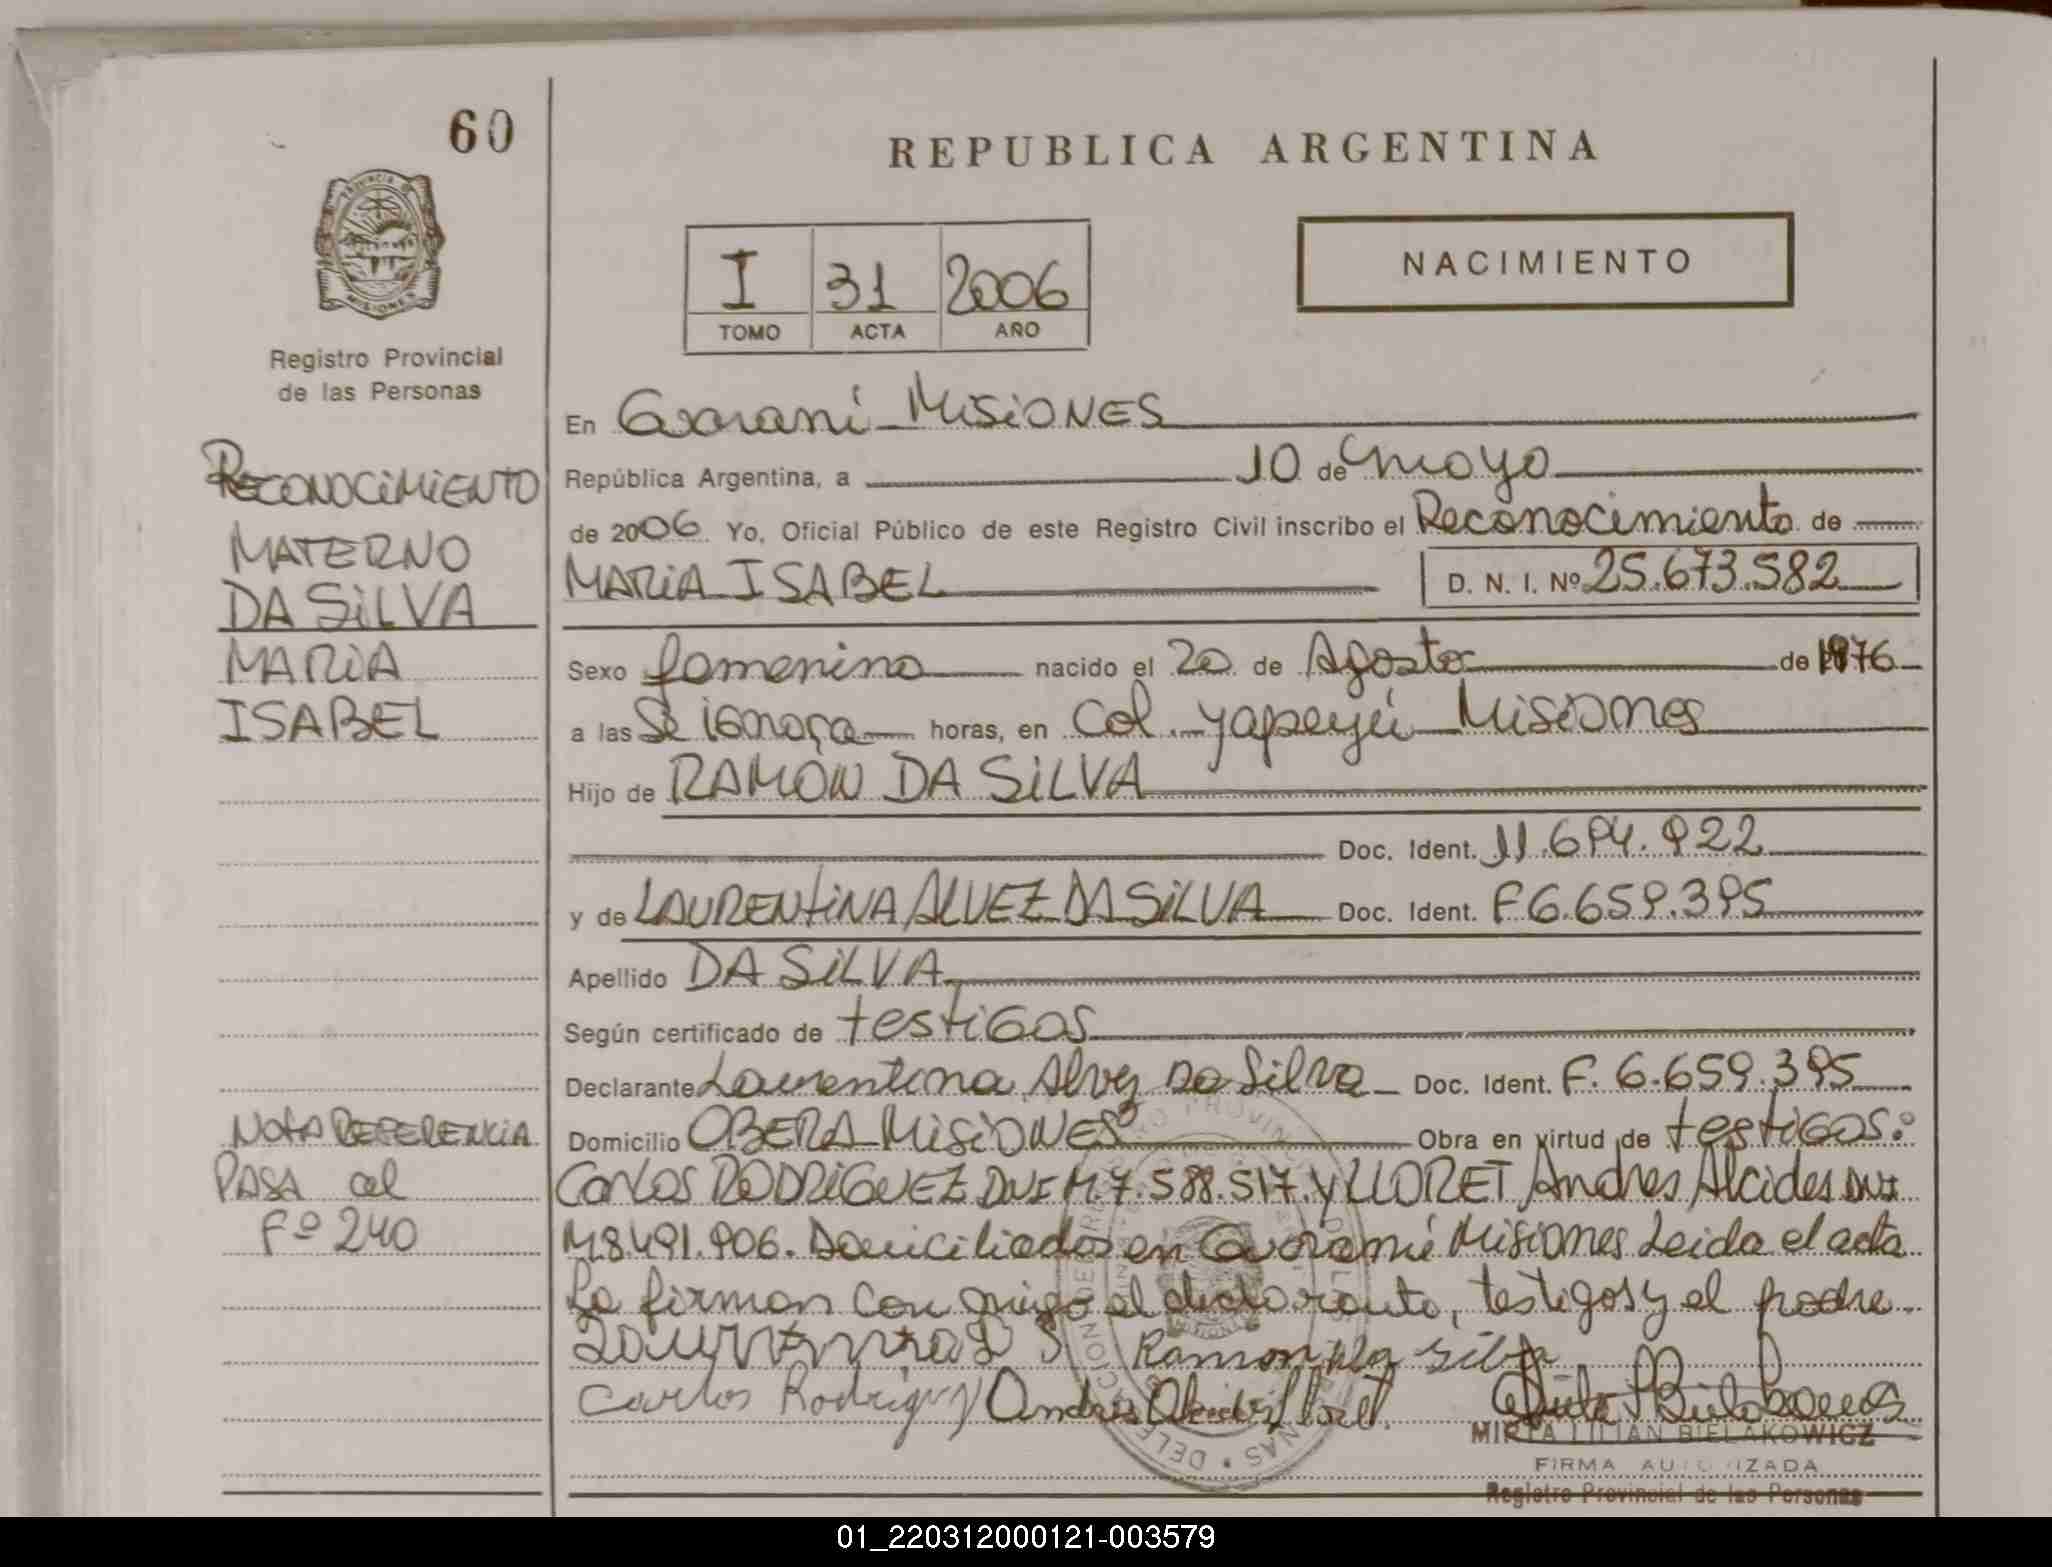 60
REPUBLICA ARGENTINA
PROVINCIA DE
MISIONES
I 31 2006
TOMO ACTA AÑO
NACIMIENTO
Registro Provincial
de las Personas
En Guarani Misiones
República Argentina, a 10 de mayo
de 2006 Yo, Oficial Público de este Registro Civil inscribo el Reconocimiento de
MARIA ISABEL D. N. I. Nº 25.673.582
Sexo femenino nacido el 20 de Agosto de 1976
a las Se ignora horas, en Col. Yapeyú Misiones
Hijo de RAMON DA SILVA
Doc. Ident. 11.694.922
y de LAURENTINA ALVEZ DA SILVA Doc. Ident. F 6.659.395
Apellido DA SILVA
Según certificado de testigos
Declarante Laurentina Alvez Da Silva Doc. Ident. F. 6.659.395
Domicilio OBERA MISIONES Obra en virtud de testigos:
CARLOS RODRIGUEZ DNI M.7.588.517. y LLORET Andres Alcides DNI
M8.491.906. Domiciliados en Guaraní Misiones Leida el acta
La firman con migo el declarante, testigos y el padre
Ramon da silva
Carlos Rodriguez Andres Alcides Lloret
MIRTA LILIAN BIELAKOWICZ
FIRMA AUTORIZADA
Registro Provincial de las Personas
RECONOCIMIENTO
MATERNO
DA SILVA
MARIA
ISABEL
NOTA REFERENCIA
PASA al
Fº 240
01_220312000121-003579